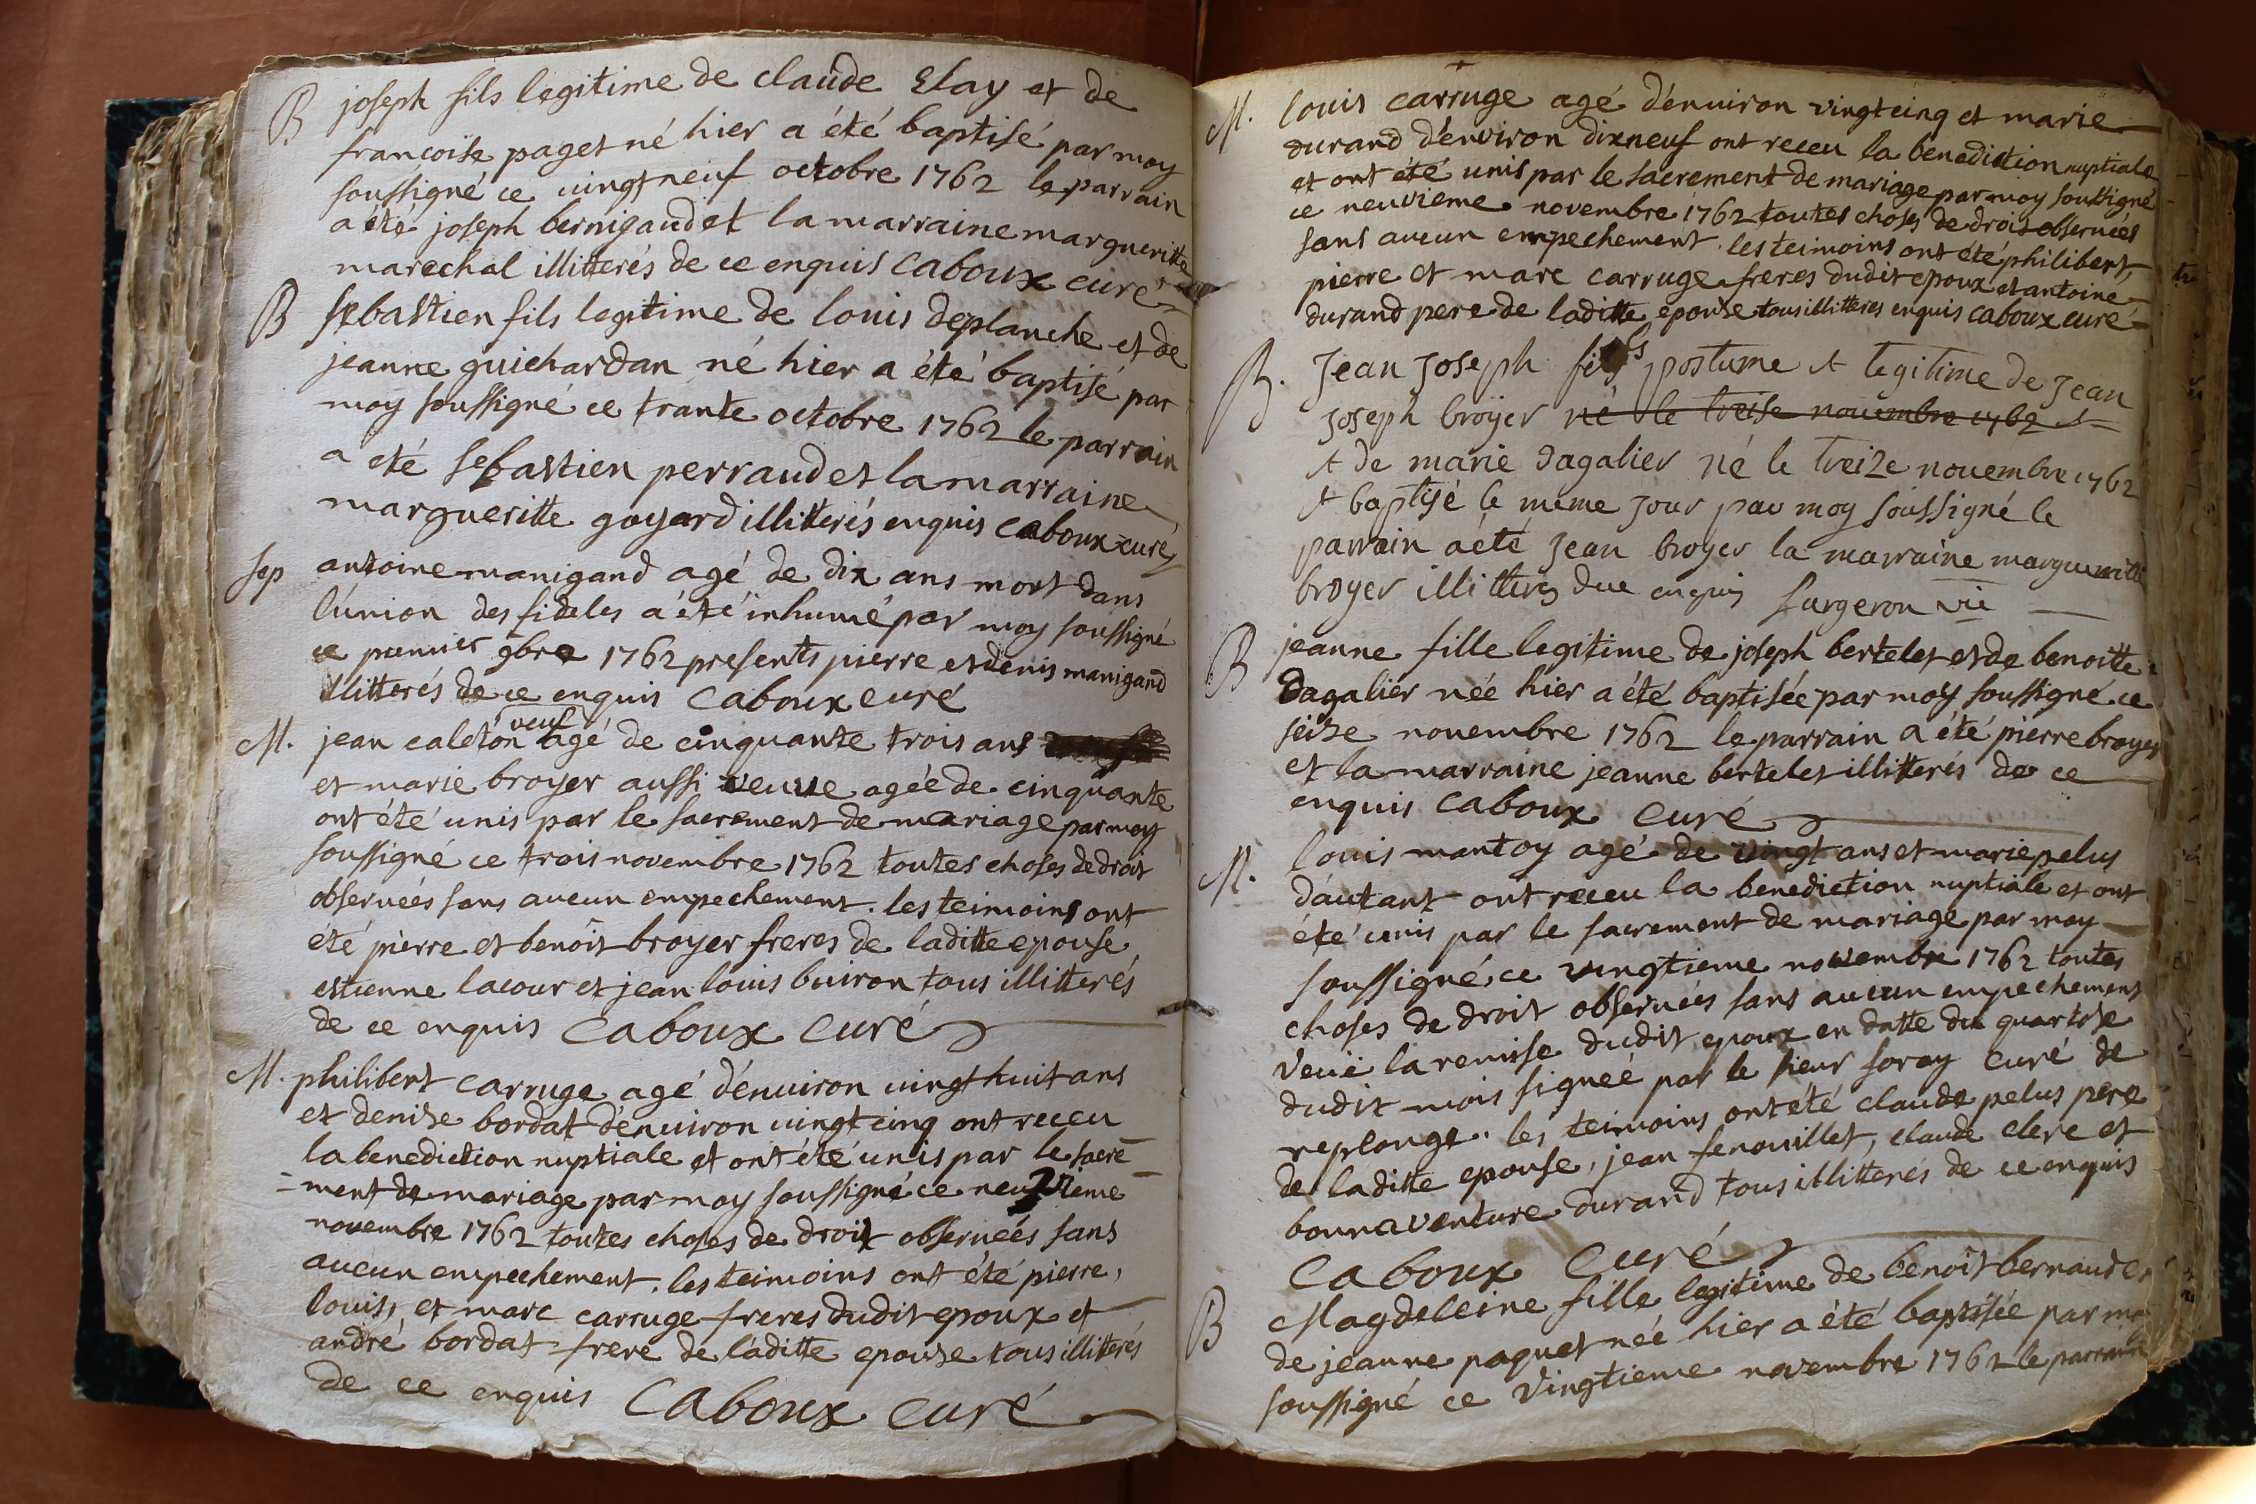 B joseph fils legitime de claude Elay et de
francoise paget né hier a été baptisé par moy
soussigné ce vingt neuf octobre 1762 le parrain
a été joseph bernigaud et la marraine margueritte
marechal illitterés de ce enquis caboux curé
B sebastien fils legitime de louis deplanche et de
jeanne guichardan né hier a été baptisé par
moy soussigné ce trante octobre 1762 le parrain
a eté sebastien perraud et la marraine
margueritte goyard illitterés enquis caboux curé
Sep antoine manigand agé de dix ans mort dans
l'union des fideles a été inhumé par moy soussigné
ce premier 9bre 1762 presents pierre et denis manigand
illitterés de ce enquis caboux curé
veuf
M. jean caleton agé de cinquante trois ans
et marie broyer aussi veuve agée de cinquante
ont été unis par le sacrement de mariage par moy
soussigné ce trois novembre 1762 toutes choses de droit
observées sans aucun empechement. les teimoins ont
eté pierre et benoît broyer freres de laditte epouse,
estienne lacour et jean louis buiron tous illitterés
de ce enquis caboux curé
M. philibert carruge agé d'environ vingt huit ans
et denise bordat d'environ vingt cinq ont receu
la benediction nuptiale et ont été unis par le sacre
ment de mariage par moy soussigné ce neuvieme
novembre 1762 toutes choses de droit observées sans
aucun empechement. les teimoins ont été pierre,
louis, et marc carruge freres dudit epoux et
andré bordat frere de laditte epouse tous illitterés
de ce enquis caboux curé
M. louis carruge agé d'environ vingt cinq et marie
durand d'environ dixneuf ont receu la benediction nuptiale
et ont été unis par le sacrement de mariage par moy soussigné
ce neuvieme novembre 1762 toutes choses de droit observées
sans aucun empechement. les teimoins ont été philibert,
pierre et marc carruge freres dudit epoux et antoine
durand pere de laditte epouse tous illitteres enquis caboux curé
B. Jean Joseph fils postume et legitime de Jean
Joseph broyer né le treise novembre 1762 et
et de marie dagalier né le treize novembre 1762
et baptisé le meme jour par moy soussigné le
parrain a été Jean broyer la marraine margueritte
broyer illitterés enquis surgeron vic
B jeanne fille legitime de joseph bertelet et de benoitte
dagalier née hier a été baptisée par moy soussigné ce
seize novembre 1762 le parrain a été pierre broyer
et la marraine jeanne bertelet illitterés de ce
enquis caboux curé
M. louis mantoy agé de vingt ans et marie pelus
d'autant ont receu la benediction nuptiale et ont
été unis par le sacrement de mariage par moy
soussigné ce vingtieme novembre 1762 toutes
choses de droit observées sans aucun empechement
veuë la remise dudit epoux en datte du quartose
dudit mois signeé par le sieur soray curé de
replonge. les teimoins ont été claude pelus pere
de laditte epouse, jean fenouillet, claude clere et
bonnaventure durand tous illitterés de ce enquis
caboux curé
B Magdeleine fille legitime de benoît bernaud et
de jeanne paquet née hier a été baptisée par moy
soussigné ce vingtieme novembre 1762 le parrain